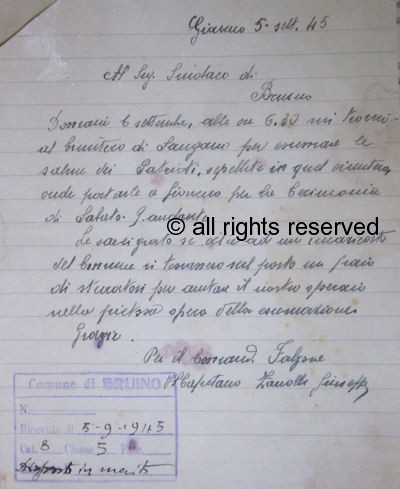 Giaveno 5. sett. 45
Al Sig. Sindaco di
Bruino
Domani 6 settembre, alle ore 6.30 mi troverò
al cimitero di Sangano per esumare le
salme dei Patrioti, seppellite in quel cimitero,
onde portarle a Giaveno per la Cerimonia
di Sabato 9. andante.
© all rights reserved
Le sarei grato se oltre ad un incaricato
del Comune si trovassero sul posto un paio
di sterratori per aiutare il nostro operaio
nella pietosa opera della esumazione.
Grazie.
Per il Comand. Falzone
Il Capitano Zanolli Giuseppe
Comune di BRUINO
N.
Ricevuto il 5-9-1945
Cat. 8 Classe 5 Fasc.
Risposto in merito